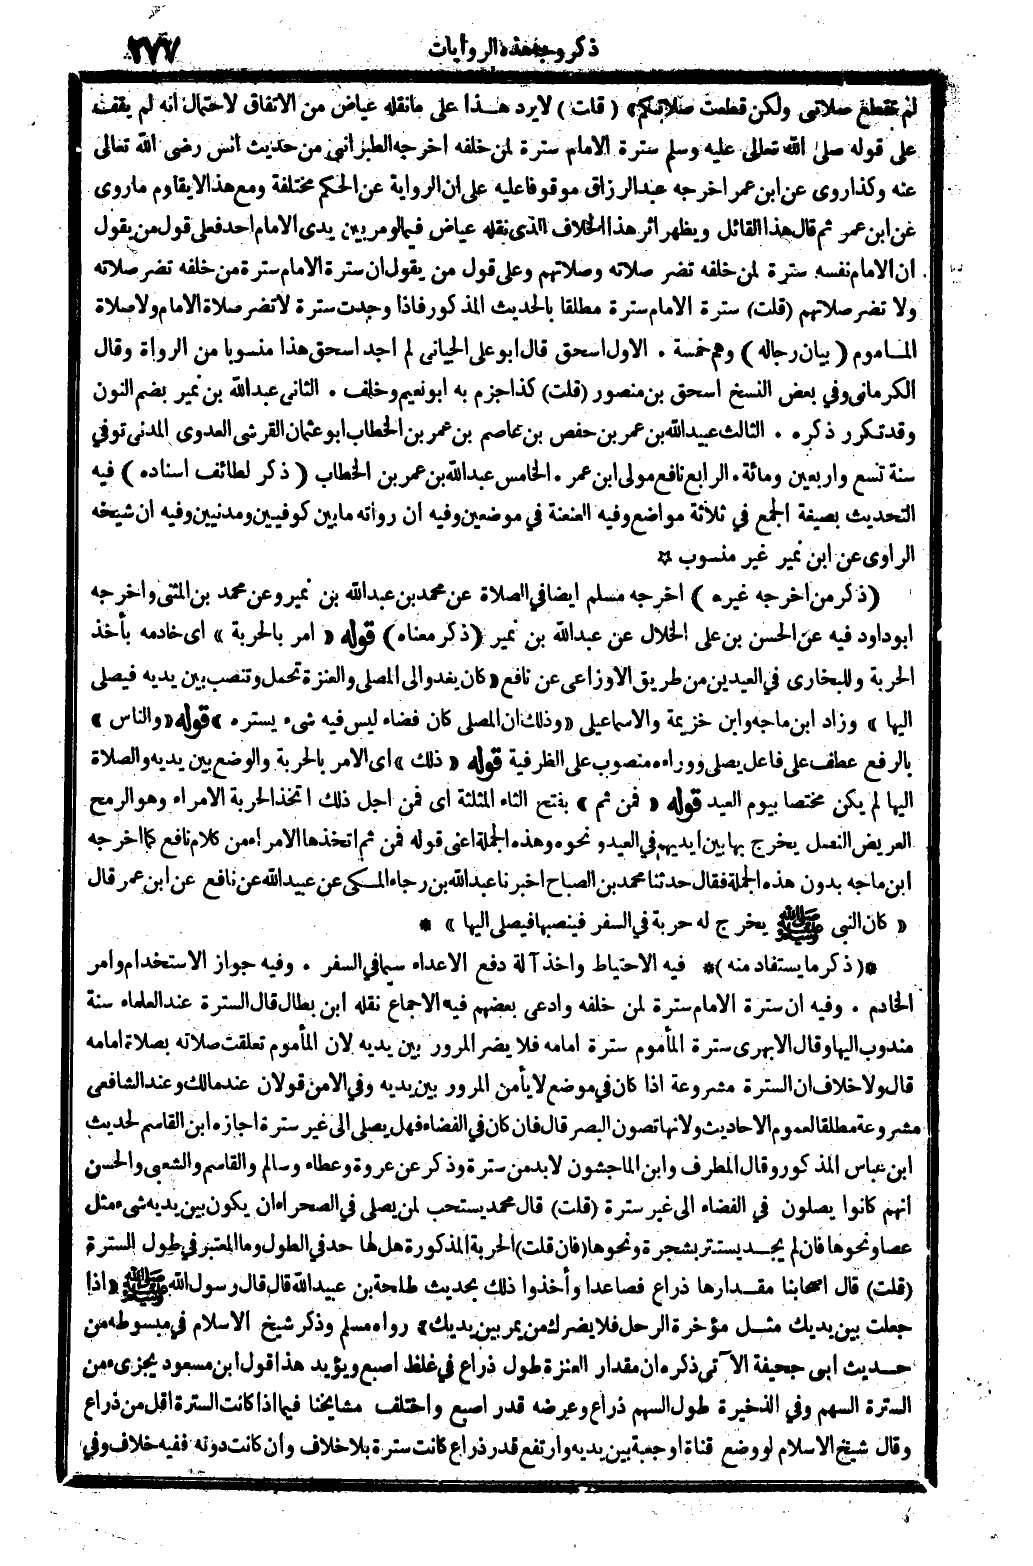 ذكر وجه هذه الروايات
٢٧٧
لم تقطع صلاتى ولكن قطعت صلاتكم» (قلت) لا يرد هذا على ما نقله عياض من الاتفاق لاحتمال انه لم يقف
على قوله صلى الله تعالى عليه وسلم سترة الامام سترة لمن خلفه اخرجه الطبرانى من حديث انس رضى الله تعالى
عنه وكذا روى عن ابن عمر اخرجه عبد الرزاق موقوفا عليه على ان الرواية عن الحكم مختلفة ومع هذا لا يقاوم ما روى
عن ابن عمر ثم قال هذا القائل ويظهر اثر هذا الخلاف الذى نقله عياض فيما لو مر بين يدى الامام احد فعلى قول من يقول
ان الامام نفسه سترة لمن خلفه تضر صلاته وصلاتهم وعلى قول من يقول ان سترة الامام سترة من خلفه تضر صلاته
ولا تضر صلاتهم (قلت) سترة الامام سترة مطلقا بالحديث المذكور فاذا وجدت سترة لا تضر صلاة الامام ولا صلاة
المـاموم (بيان رجاله) وهم خمسة . الاول اسحق قال ابو على الجيانى لم اجد اسحق هذا منسوبا من الرواة وقال
الكرمانى وفي بعض النسخ اسحق بن منصور (قلت) كذا جزم به ابو نعيم وخلف . الثانى عبد الله بن نمير بضم النون
وقد تكرر ذكره . الثالث عبيد الله بن عمر بن حفص بن عاصم بن عمر بن الخطاب ابو عثمان القرشى العدوى المدنى توفي
سنة تسع واربعين ومائة . الرابع نافع مولى ابن عمر . الخامس عبد الله بن عمر بن الخطاب (ذكر لطائف اسناده) فيه
التحديث بصيغة الجمع في ثلاثة مواضع وفيه العنعنة في موضعين وفيه ان رواته ما بين كوفيين ومدنيين وفيه ان شيخه
الراوى عن ابن نمير غير منسوب ☆
(ذكر من اخرجه غيره) اخرجه مسلم ايضا في الصلاة عن محمد بن عبد الله بن نمير وعن محمد بن المثنى واخرجه
ابو داود فيه عن الحسن بن على الخلال عن عبد الله بن نمير (ذكر معناه) قوله «امر بالحربة» اى خادمه بأخذ
الحربة وللبخارى في العيدين من طريق الاوزاعى عن نافع «كان يغدو الى المصلى والعنزة تحمل وتنصب بين يديه فيصلى
اليها» وزاد ابن ماجه وابن خزيمة والاسماعيلى «وذلك ان المصلى كان فضاء ليس فيه شىء يستره» قوله «والناس»
بالرفع عطف على فاعل يصلى ووراءه منصوب على الظرفية قوله «ذلك» اى الامر بالحربة والوضع بين يديه والصلاة
اليها لم يكن مختصا بيوم العيد قوله «فمن ثم» بفتح الثاء المثلثة اى فمن اجل ذلك اتخذ الحربة الامراء وهو الرمح
العريض النصل يخرج بها بين ايديهم في العيد ونحوه وهذه الجملة اعنى قوله فمن ثم اتخذها الامراء من كلام نافع كما اخرجه
ابن ماجه بدون هذه الجملة فقال حدثنا محمد بن الصباح اخبرنا عبد الله بن رجاء المـكى عن عبيد الله عن نافع عن ابن عمر قال
«كان النبى ﷺ يخرج له حربة في السفر فينصبها فيصلى اليها» *
*(ذكر ما يستفاد منه)* فيه الاحتياط واخذ آلة دفع الاعداء سيما في السفر . وفيه جواز الاستخدام وامر
الخادم . وفيه ان سترة الامام سترة لمن خلفه وادعى بعضهم فيه الاجماع نقله ابن بطال قال السترة عند العلماء سنة
مندوب اليها وقال الابهرى سترة المأموم سترة امامه فلا يضر المرور بين يديه لان المأموم تعلقت صلاته بصلاة امامه
قال ولا خلاف ان السترة مشروعة اذا كان في موضع لا يأمن المرور بين يديه وفي الامن قولان عند مالك وعند الشافعى
مشروعة مطلقا لعموم الاحاديث ولانها تصون البصر قال فان كان في الفضاء فهل يصلى الى غير سترة اجازه ابن القاسم لحديث
ابن عباس المذكور وقال المطرف وابن الماجشون لا بد من سترة وذكر عن عروة وعطاء وسالم والقاسم والشعبى والحسن
انهم كانوا يصلون في الفضاء الى غير سترة (قلت) قال محمد يستحب لمن يصلى في الصحراء ان يكون بين يديه شىء مثل
عصا ونحوها فان لم يجـد يستتر بشجرة ونحوها (فان قلت) الحربة المذكورة هل لها حد في الطول وما المعتبر في طول السترة
(قلت) قال اصحابنا مقـدارها ذراع فصاعدا وأخذوا ذلك بحديث طلحة بن عبيد الله قال قال رسول الله ﷺ «اذا
جعلت بين يديك مثـل مؤخرة الرحل فلا يضرك من يمر بين يديك» رواه مسلم وذكر شيخ الاسلام في مبسوطه من
حـديث ابى جحيفة الآتى ذكره ان مقدار العنزة طول ذراع في غلظ اصبع ويؤيد هذا قول ابن مسعود يجزىء من
السترة السهم وفي الذخيرة طول السهم ذراع وعرضه قدر اصبع واختلف مشايخنا فيما اذا كانت السترة اقل من ذراع
وقال شيخ الاسلام لو وضع قناة او جعبة بين يديه وارتفع قدر ذراع كانت سترة بلا خلاف وان كانت دونه ففيه خلاف وفي